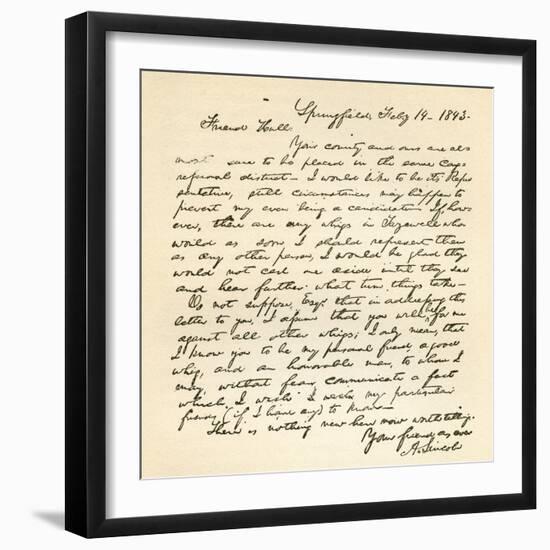 Springfield, Feby 14 - 1843.
Friend Hull:
Your county and ours are al
most sure to be placed in the same cong
ressional district - I would like to be its Repre
sentative, still circumstances may happen to
prevent my even being a candidate - If, how
ever, there are any whigs in Tazewell who
would as soon I should represent them
as any other person, I would be glad they
would not cast me aside until they see
and hear farther what turn things take -
Do not suppose, Esqr. that in addressing this
letter to you, I assume that you will be for me
against all other whigs; I only mean, that
I know you to be my personal friend, a good
whig, and an honorable man, to whom I
may, without fear, communicate a fact
which I wish my particular
friends (if I have any) to know -
There is nothing new here now worth telling.
Your friend as ever
A. Lincoln